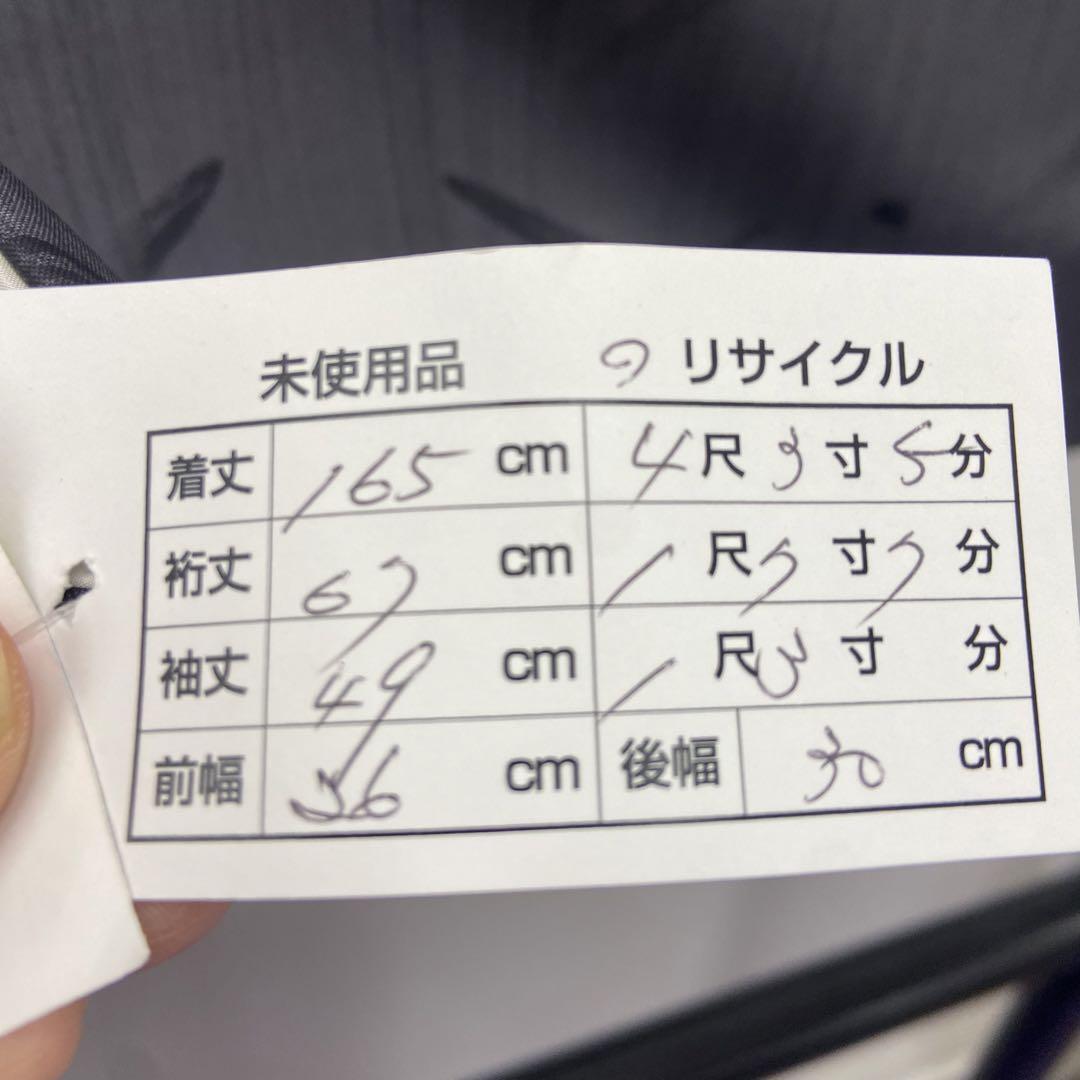 未使用品 の リサイクル
着丈 165 cm 4尺 3寸 5分
裄丈 67 cm 1尺 7寸 7分
袖丈 49 cm 1尺 3寸 分
前幅 26 cm 後幅 30 cm